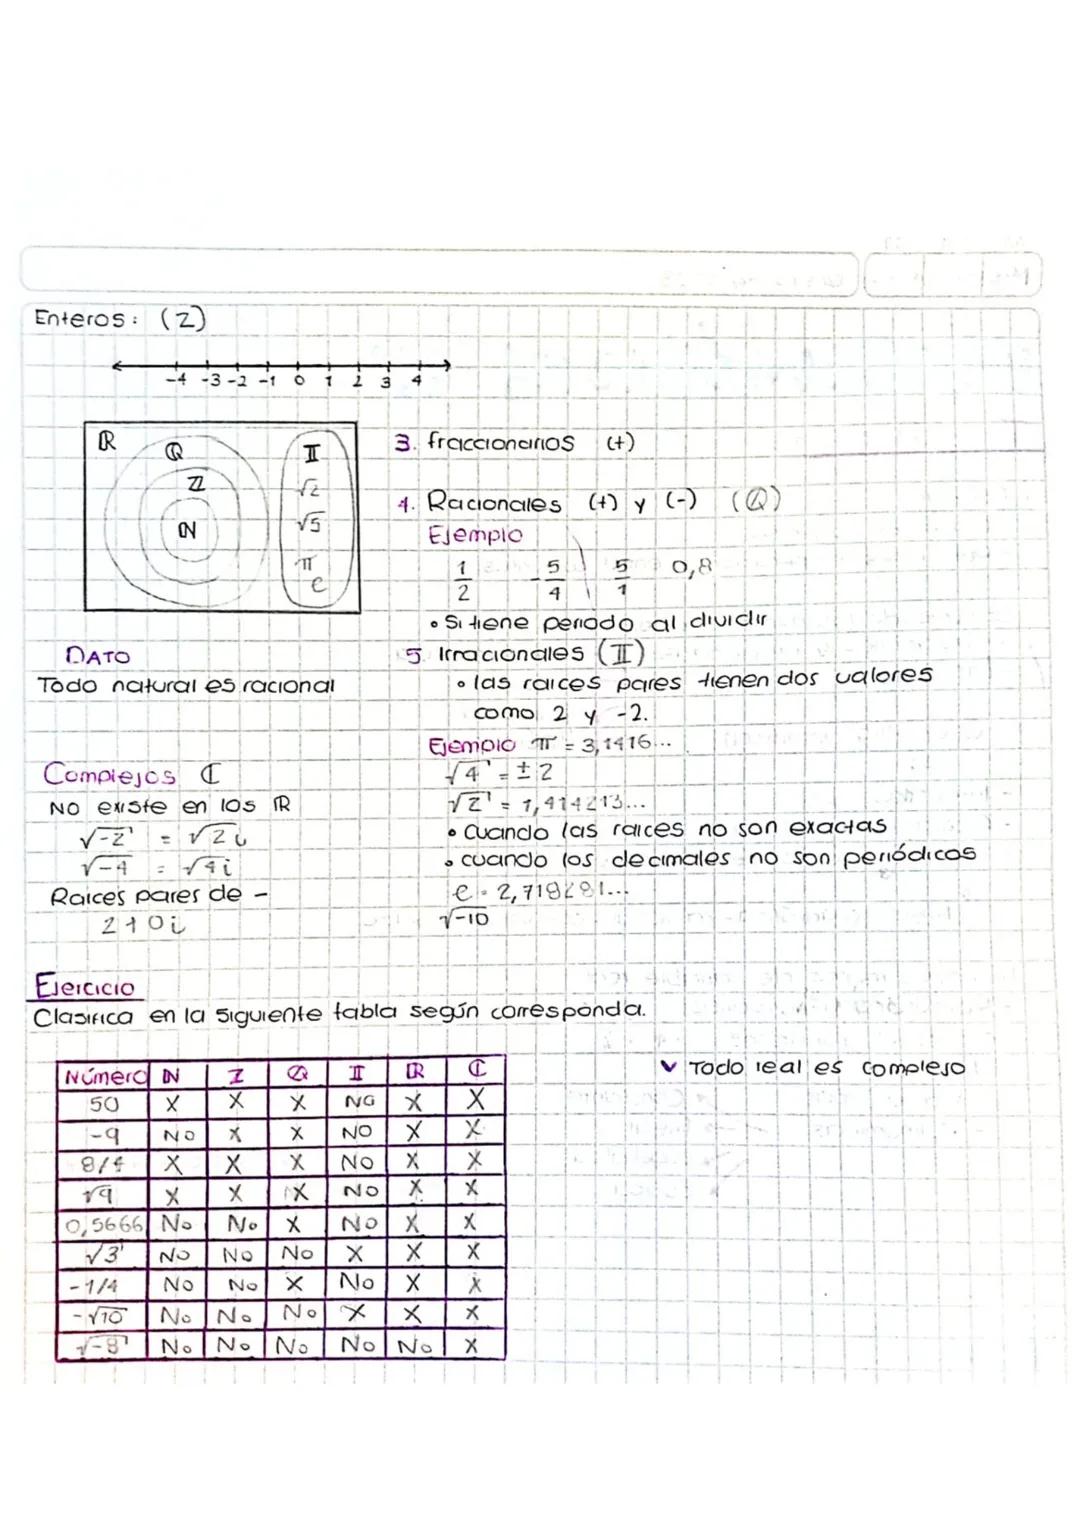 Enteros: (Z)
-4 -3 -2 -1 0 1 2 3 4
ℝ
ℚ
ℤ
ℕ
𝕀
√2
√5
π
e
3. fraccionarios (+)
4. Racionales (+) y (-) (ℚ)
Ejemplo
1/2 -5/4 5/1 0,8
• Si tiene periodo al dividir
DATO
Todo natural es racional
5. Irracionales (𝕀)
• las raices pares tienen dos valores
como 2 y -2.
Ejemplo π = 3,1416...
√4 = ±2
√2 = 1,414213...
• Cuando las raices no son exactas
• cuando los decimales no son periódicos
e = 2,718281...
√-10
Complejos ℂ
No existe en los ℝ
√-2 = √2 i
√-4 = √4 i
Raices pares de -
2+0i
Ejercicio
Clasifica en la siguiente tabla según corresponda.
Número ℕ ℤ ℚ 𝕀 ℝ ℂ
50 X X X NO X X
-9 NO X X NO X X
8/4 X X X NO X X
√9 X X X NO X X
0,5666 No No X NO X X
√3 NO NO NO X X X
-1/4 NO No X No X X
-√10 No No No X X X
√-8 No No No No No X
✓ Todo real es complejo